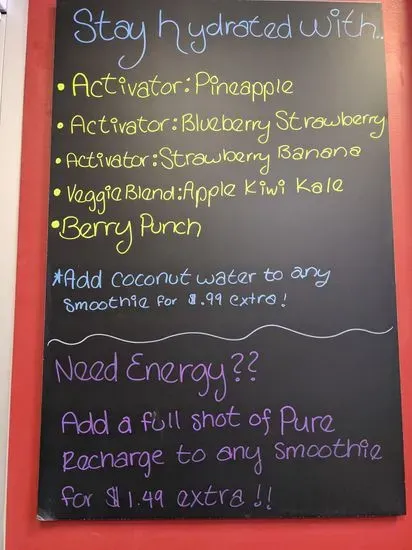 Stay hydrated with..
• Activator: Pineapple
• Activator: Blueberry Strawberry
• Activator: Strawberry Banana
• Veggie Blend: Apple Kiwi Kale
• Berry Punch
*Add coconut water to any
smoothie for $.99 extra!
Need Energy??
Add a full shot of Pure
Recharge to any smoothie
for $1.49 extra!!